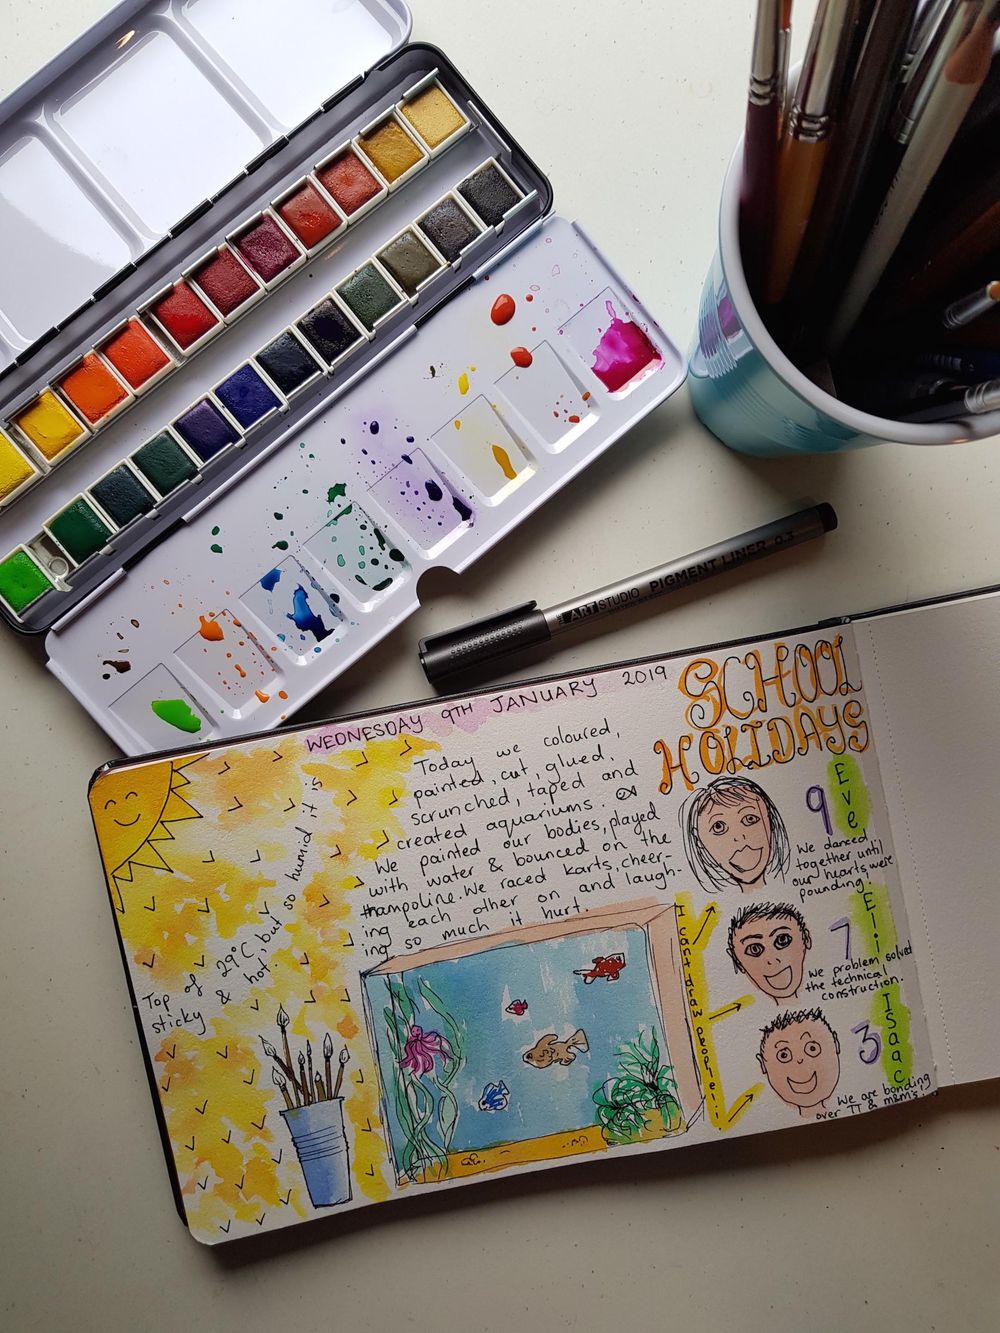 ARTSTUDIO PIGMENT LINER 0.3
WEDNESDAY 9TH JANUARY 2019
SCHOOL
HOLIDAYS
Today we coloured,
painted, cut, glued,
scrunched, taped and
created aquariums.
We painted our bodies, played
with water & bounced on the
trampoline. We raced karts, cheer-
ing each other on and laugh-
ing so much it hurt.
Top of 29°C, but so humid it is
sticky & hot.
I can't draw people
9 Eve
We danced
together until
our hearts were
pounding.
7 Eli
We problem solved
the technical
construction.
3 Isaac
We are bonding
over TT & M&M's!